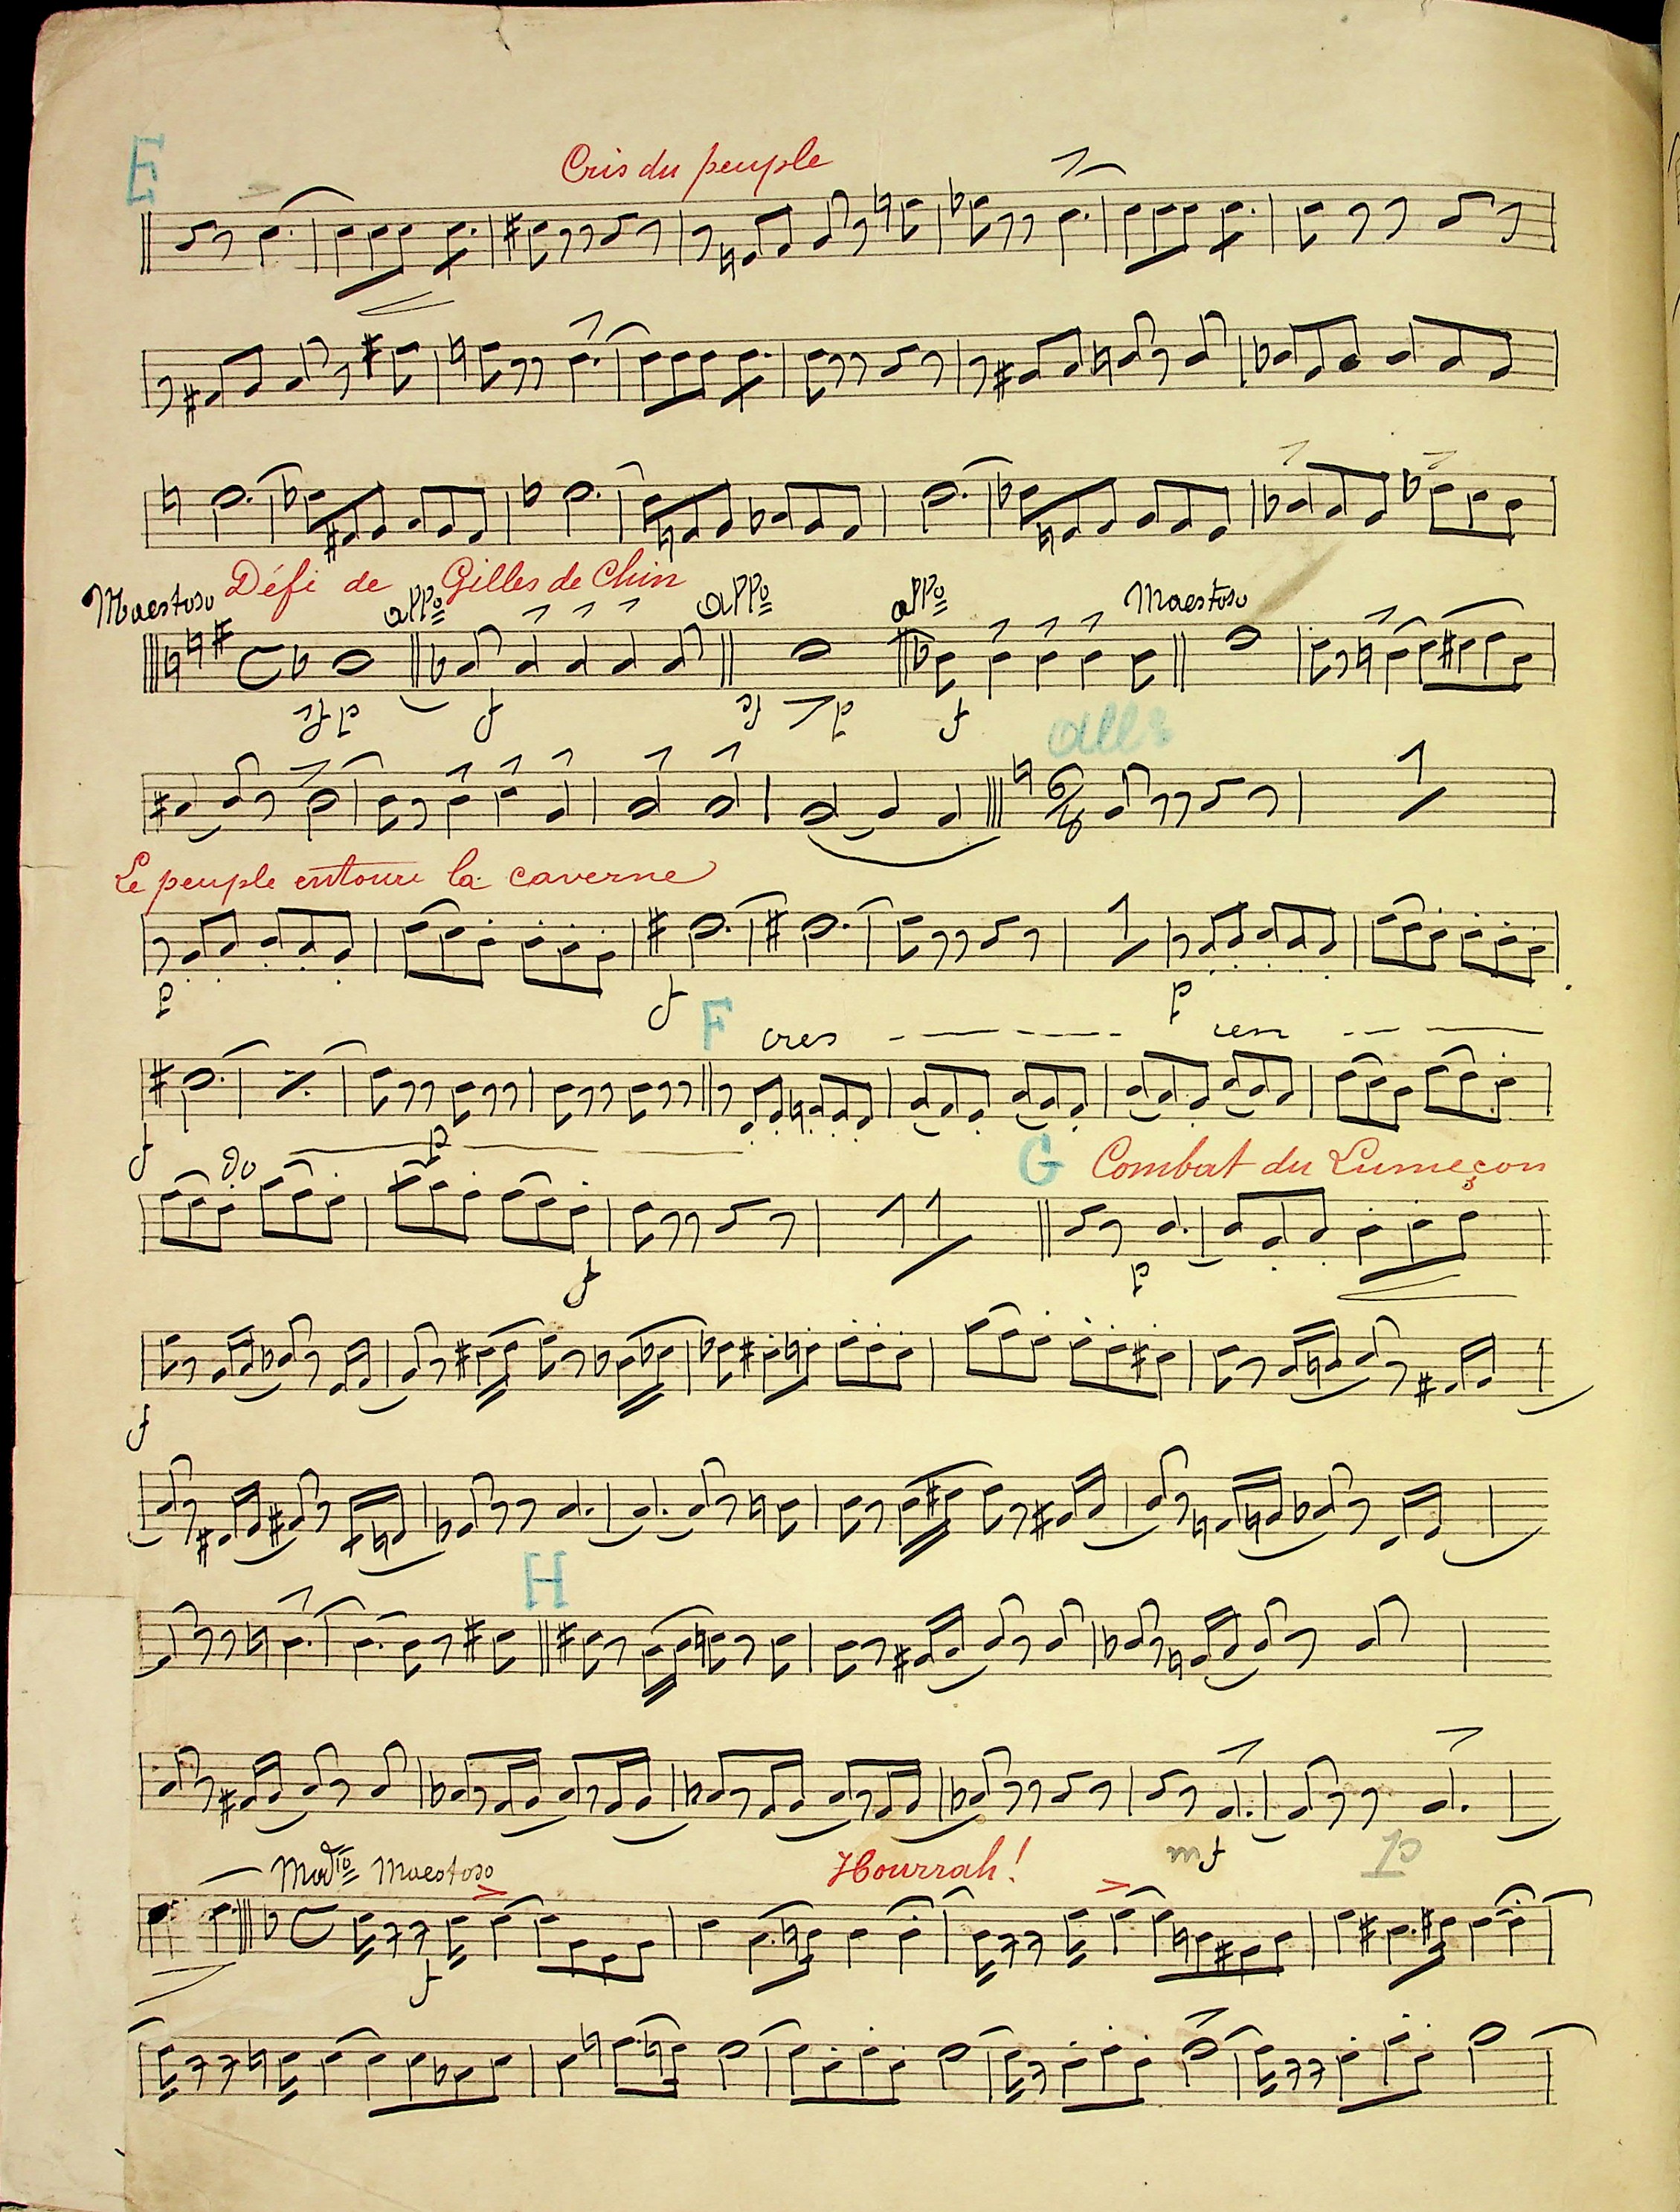 E
Cris du peuple
Maestoso Défi de Gilles de Chin
all⁰ all⁰ all⁰ Maestoso
sf p f sf p f
all⁰
6/8
Le peuple entoure la caverne
p f p
F cres - - - cen - - -
f p
do G Combat du Lumeçon
f p
f
H
mf p
Mod to Maestoso Hourrah!
f